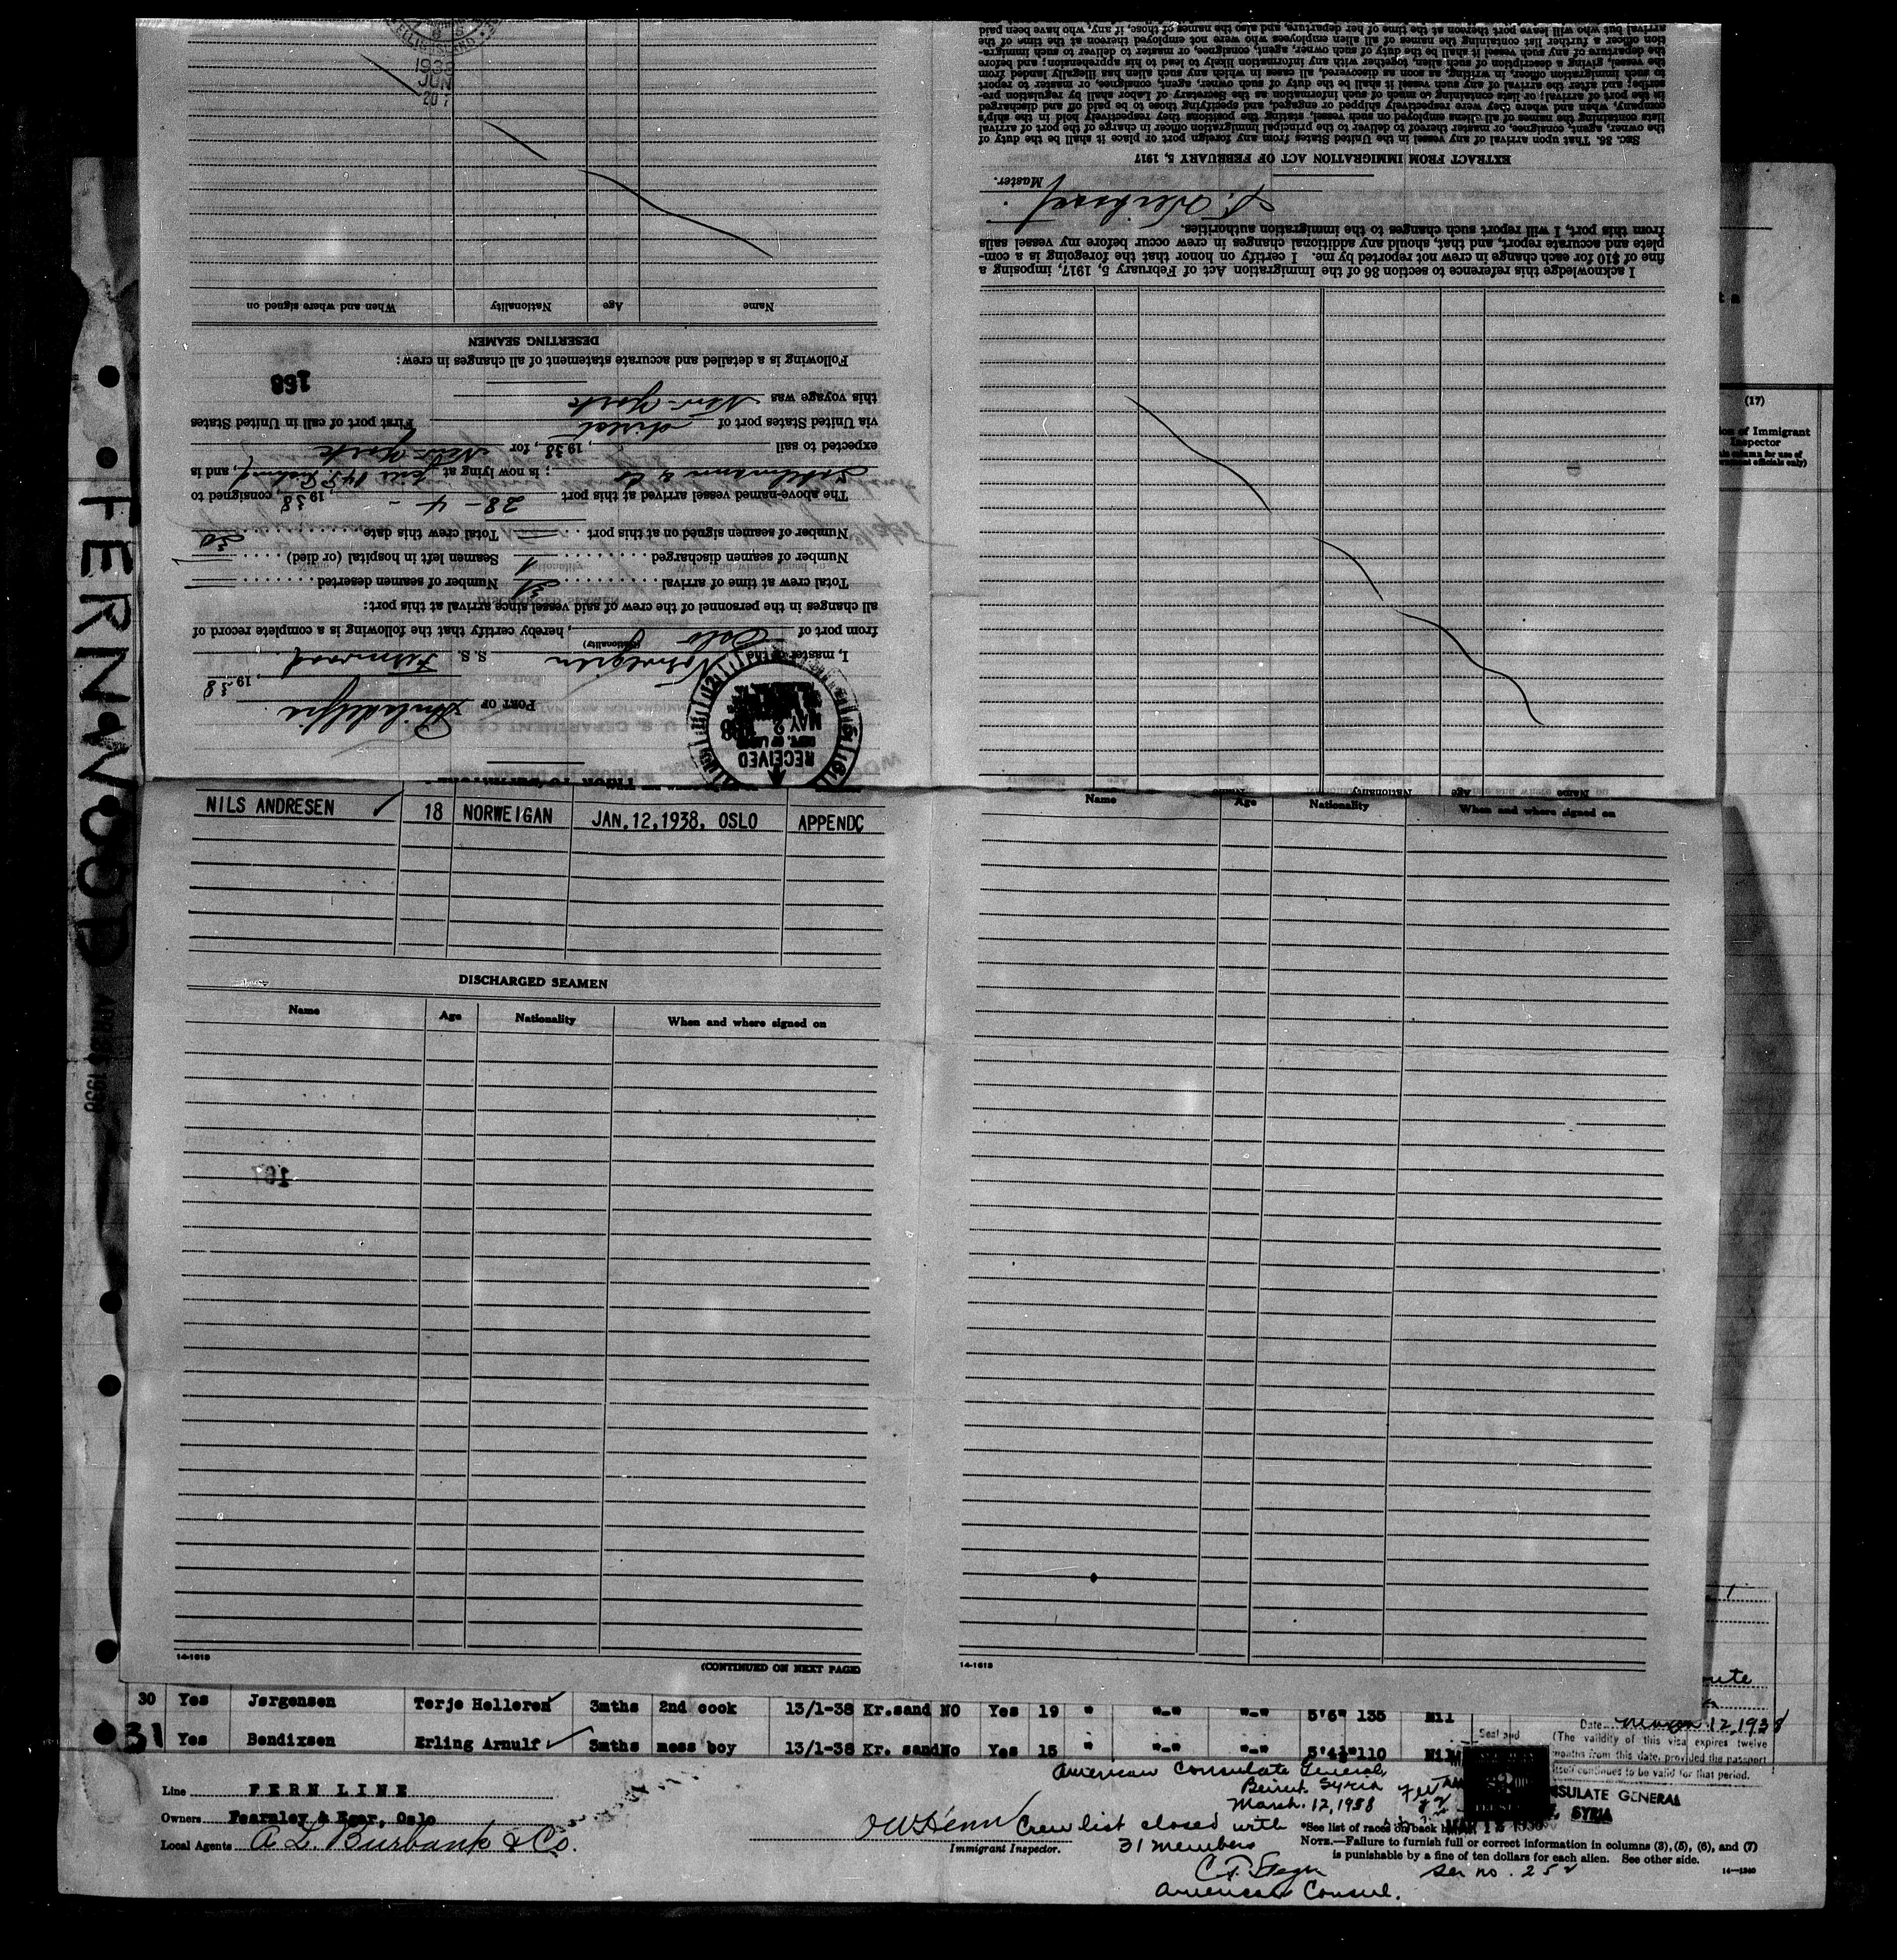 arrival but who will leave port thereon at the time of her departure, and also the names of those, if any, who have been paid
tion officer a further list containing the names of all alien employees who were not employed thereon at the time of the
the departure of any such vessel it shall be the duty of such owner, agent, consignee, or master to deliver to such immigra-
the vessel, giving a description of such alien, together with any information likely to lead to his apprehension; and before
to such immigration officer, in writing, as soon as discovered, all cases in which any such alien has illegally landed from
scribe; and after the arrival of any such vessel it shall be the duty of such owner, agent, consignee, or master to report
in the port of arrival; or lists containing so much of such information as the Secretary of Labor shall by regulation pre-
company, when and where they were respectively shipped or engaged, and specifying those to be paid off and discharged
lists containing the names of all aliens employed on such vessel, stating the positions they respectively hold in the ship's
the owner, agent, consignee, or master thereof to deliver to the principal immigration officer in charge of the port of arrival
Sec. 36. That upon arrival of any vessel in the United States from any foreign port or place it shall be the duty of
EXTRACT FROM IMMIGRATION ACT OF FEBRUARY 5, 1917
Master.
from this port, I will report such changes to the immigration authorities.
plete and accurate report, and that, should any additional changes in crew occur before my vessel sails
fine of $10 for each change in crew not reported by me. I certify on honor that the foregoing is a com-
I acknowledge this reference to section 36 of the Immigration Act of February 5, 1917, imposing a
ELLIS ISLAND
1938
JUN
207
Name Age Nationality When and where signed on
DESERTING SEAMEN
Following is a detailed and accurate statement of all changes in crew:
168
this voyage was New-York
via United States port of direct First port of call in United States
expected to sail , 1938, for New-York
; is now lying at , and is
The above-named vessel arrived at this port 28-4- , 1938, consigned to
Number of seamen signed on at this port Total crew this date 30
Number of seamen discharged Seamen left in hospital (or died) 1
Total crew at time of arrival 31 Number of seamen deserted
all changes in the personnel of the crew of said vessel since arrival at this port:
from port of Oslo (Nationality), hereby certify that the following is a complete record of
I, master of the Norwegian S. S. Fernwood
PORT OF Philadelphia , 1938
RECEIVED
DEPT. OF LABOR
MAY 2 1938
FERNWOOD
NILS ANDRESEN 18 NORWEIGAN JAN.12,1938, OSLO APPENDC
DISCHARGED SEAMEN
Name Age Nationality When and where signed on
14-1618 (CONTINUED ON NEXT PAGE)
Name Age Nationality When and where signed on
14-1618
(17)
of Immigrant
Inspector
30 Yes Jørgensen Terje Helleren 3mths 2nd cook 13/1-38 Kr.sand NO Yes 19 " "-" "-" 5'6" 135 Nil
31 Yes Bendixsen Erling Arnulf 3mths mess boy 13/1-38 Kr. sand No Yes 15 " "-" "-" 5'4½" 110 Nil
Line FERN LINE
Owners Fearnley & Eger, Oslo
Local Agents A. L. Burbank & Co.
Immigrant Inspector.
American Consulate General
Beirut, Syria
March. 12, 1938
Crew list closed with
31 members
American Consul.
Seal and
Date March 12, 1938
(The validity of this visa expires twelve
months from this date, provided the passport
itself continues to be valid for that period.
CONSULATE GENERAL
SYRIA
*See list of races on back
NOTE.—Failure to furnish full or correct information in columns (3), (5), (6), and (7)
is punishable by a fine of ten dollars for each alien. See other side.
Ser no. 252
14-1240